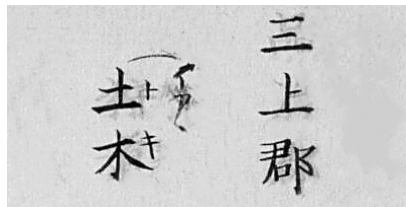 三上郡
土木
トキ